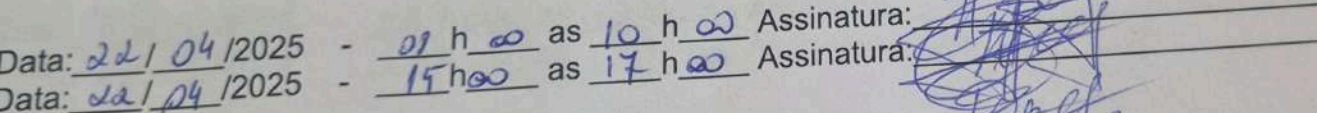 Data: 22/ 04 /2025 - 08 h 00 as 10 h 00 Assinatura:
Data: 22/ 04 /2025 - 15 h 00 as 17 h 00 Assinatura: